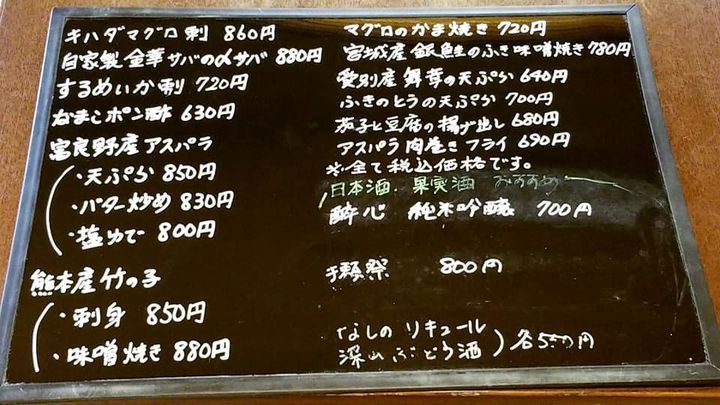 キハダマグロ刺 860円
自家製 金華サバの〆サバ 880円
するめいか刺 720円
なまこポン酢 630円
富良野産アスパラ
・天ぷら 850円
・バター炒め 830円
・塩ゆで 800円
熊本産竹の子
・刺身 850円
・味噌焼き 880円
マグロのかま焼き 720円
宮城産 銀鮭のふき味噌焼き 780円
愛別産 舞茸の天ぷら 640円
ふきのとうの天ぷら 700円
茄子と豆腐の揚げ出し 680円
アスパラ肉巻きフライ 690円
※全て税込価格です。
日本酒・果実酒 おすすめ
酔心 純米吟醸 700円
獺祭 800円
なしの リキュール
深山ぶどう酒
各550円